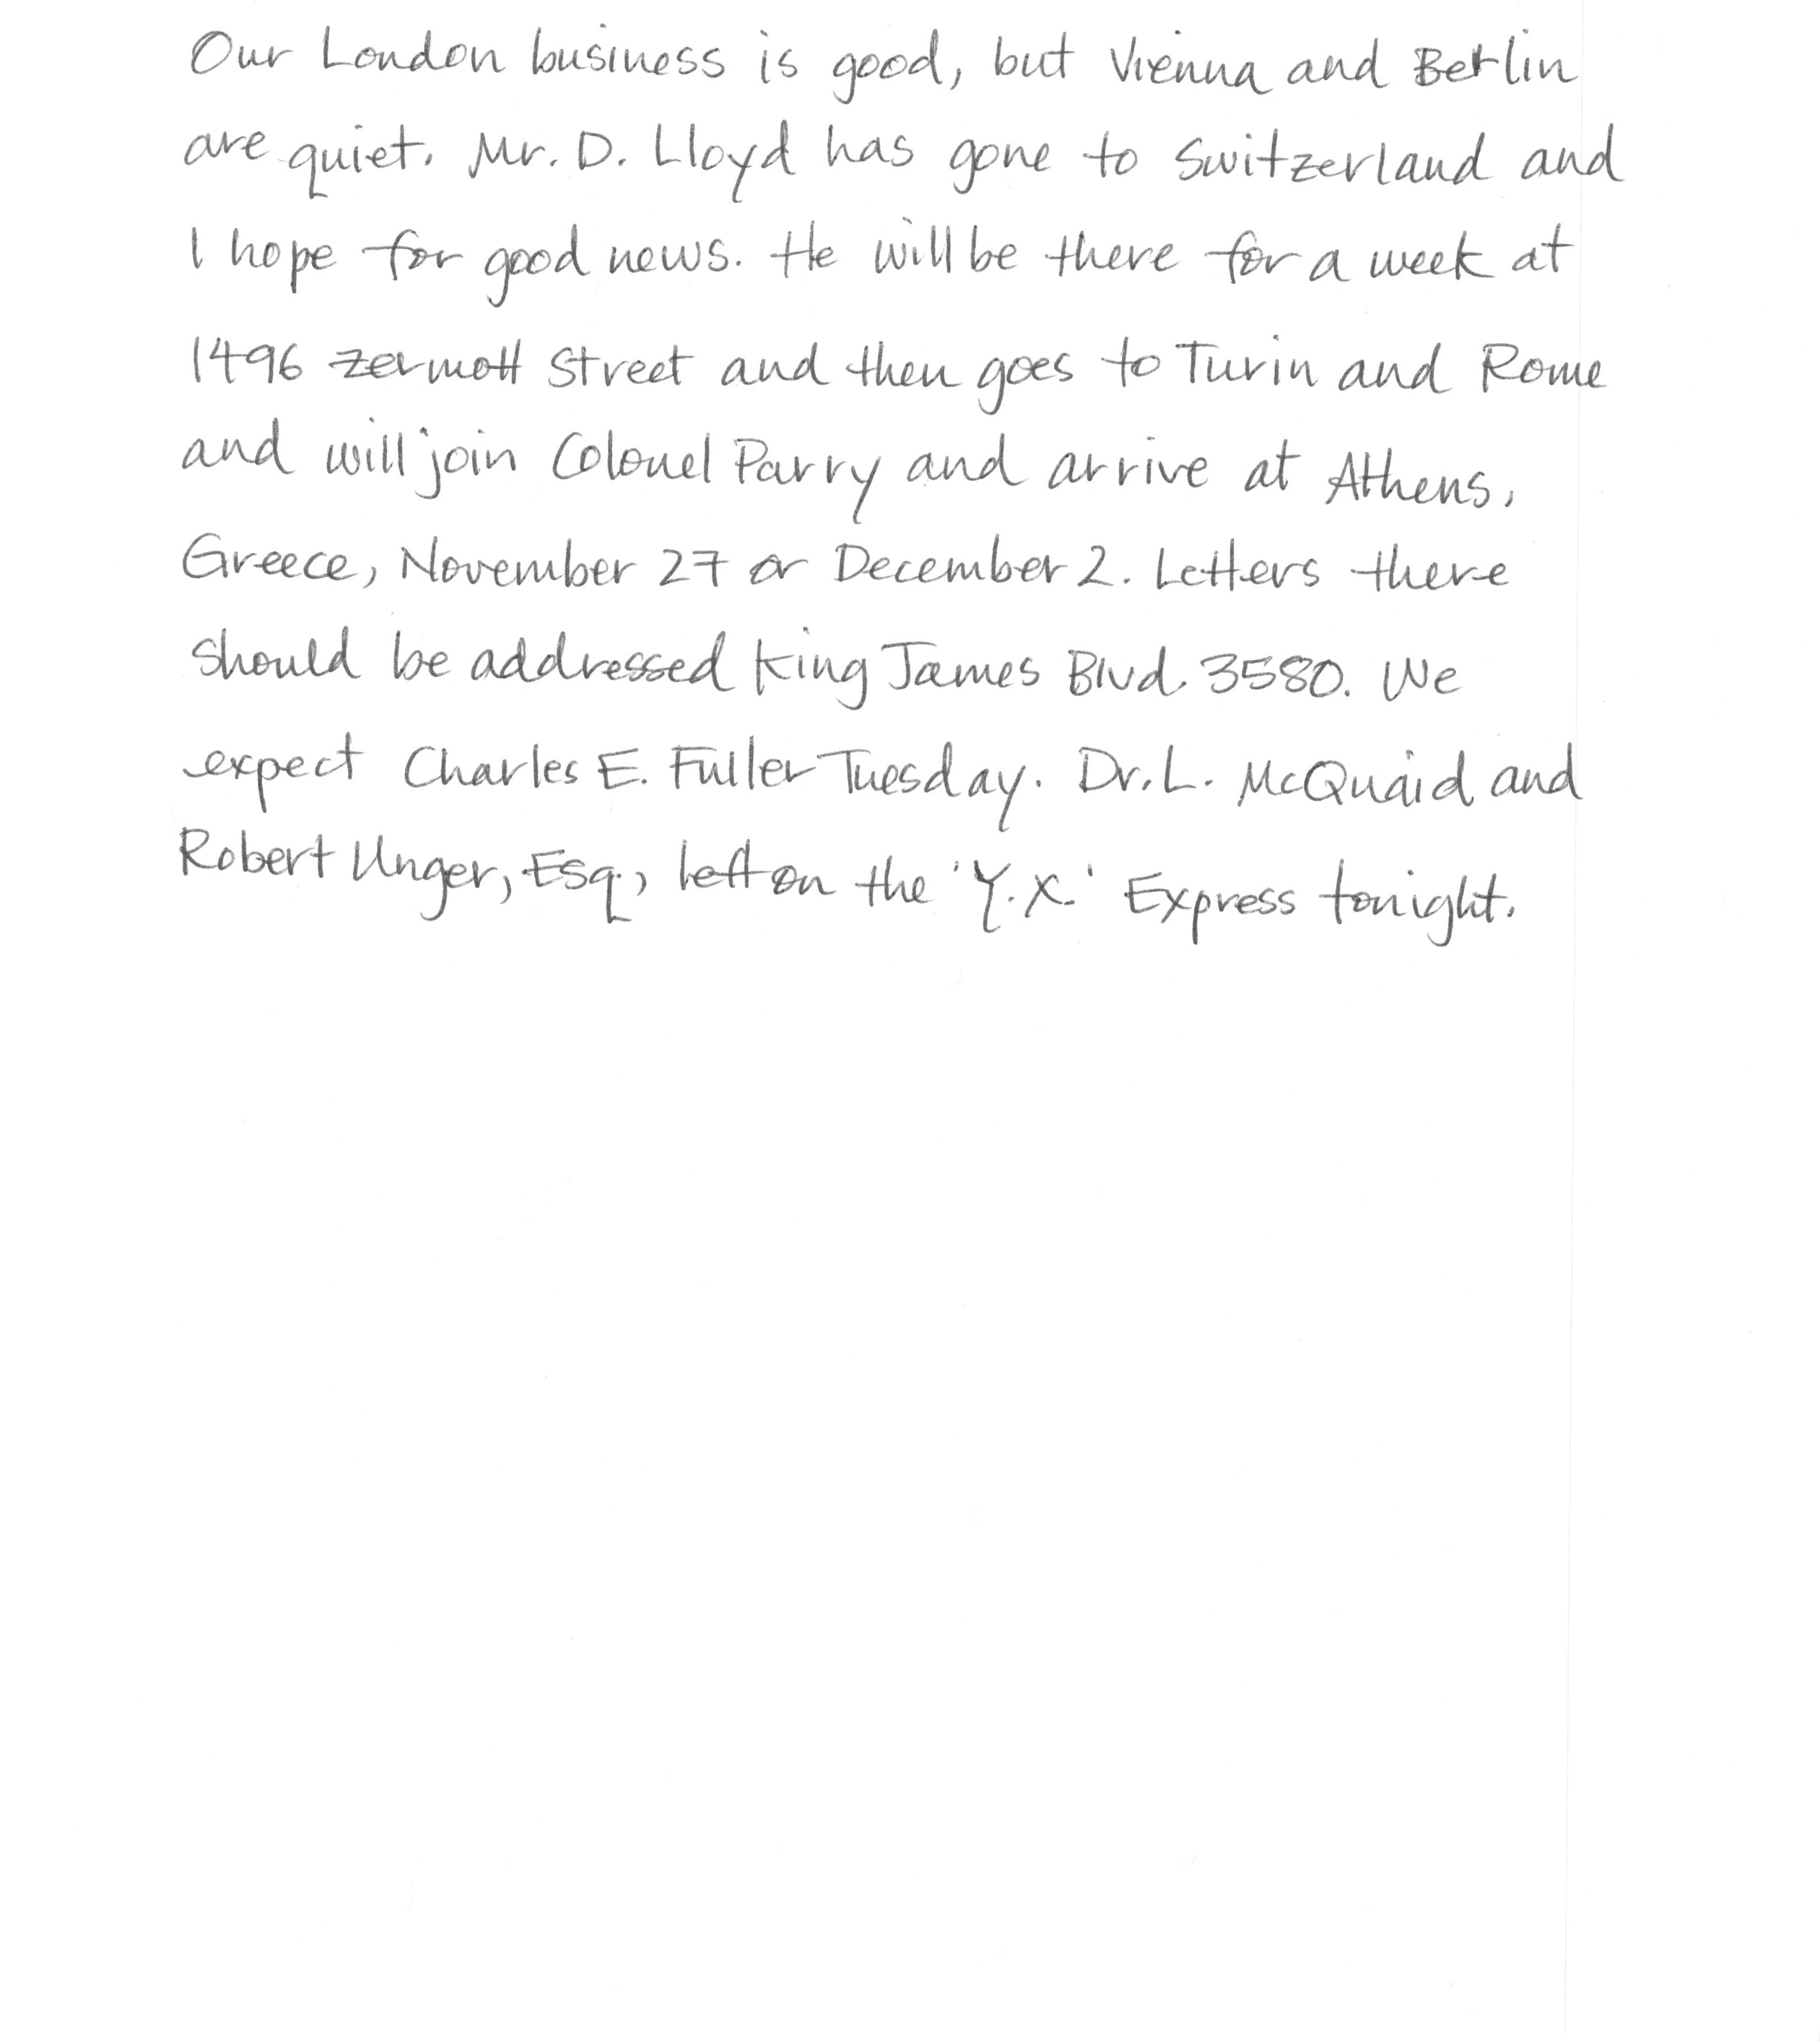 Our London business is good, but Vienna and Berlin
are quiet. Mr. D. Lloyd has gone to Switzerland and
I hope for good news. He will be there for a week at
1496 Zermott Street and then goes to Turin and Rome
and will join Colonel Parry and arrive at Athens,
Greece, November 27 or December 2. Letters there
should be addressed King James Blvd. 3580. We
expect Charles E. Fuller Tuesday. Dr. L. McQuaid and
Robert Unger, Esq., left on the 'Y.X.' Express tonight.